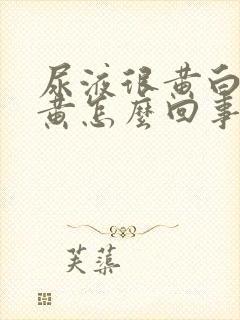 尿液很黄白
黄怎麼回事
芙蕖